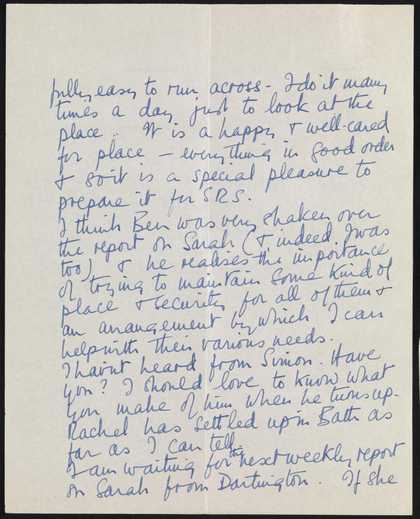 fully easy to run across - I do it many
times a day just to look at the
place. It is a happy & well-cared
for place - everything in good order
& so it is a special pleasure to
prepare it for SRS.
I think Ben was very shaken over
the report on Sarah (& indeed I was
too) & he realises the importance
of trying to maintain some kind of
place & security for all of them &
an arrangement by which I can
help with their various needs.
I havnt heard from Simon. Have
you? I should love to know what
you make of him when he turns up.
Rachel has settled up in Bath as
far as I can tell.
I am waiting for the next weekly report
on Sarah from Dartington. If she